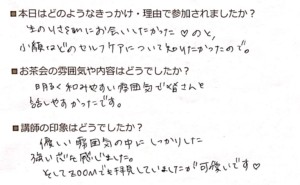 ■本日はどのようなきっかけ・理由で参加されましたか？
お会いしたかった♡のと、
小顔などのセルフケアについて知りたかったので。
■お茶会の雰囲気や内容はどうでしたか？
明るく和みやすい雰囲気で皆さんと
話しやすかったです。
■講師の印象はどうでしたか？
優しい雰囲気の中にしっかりした
強い式を感じました。
そしてZOOMでも拝見していましたが可愛いです♡